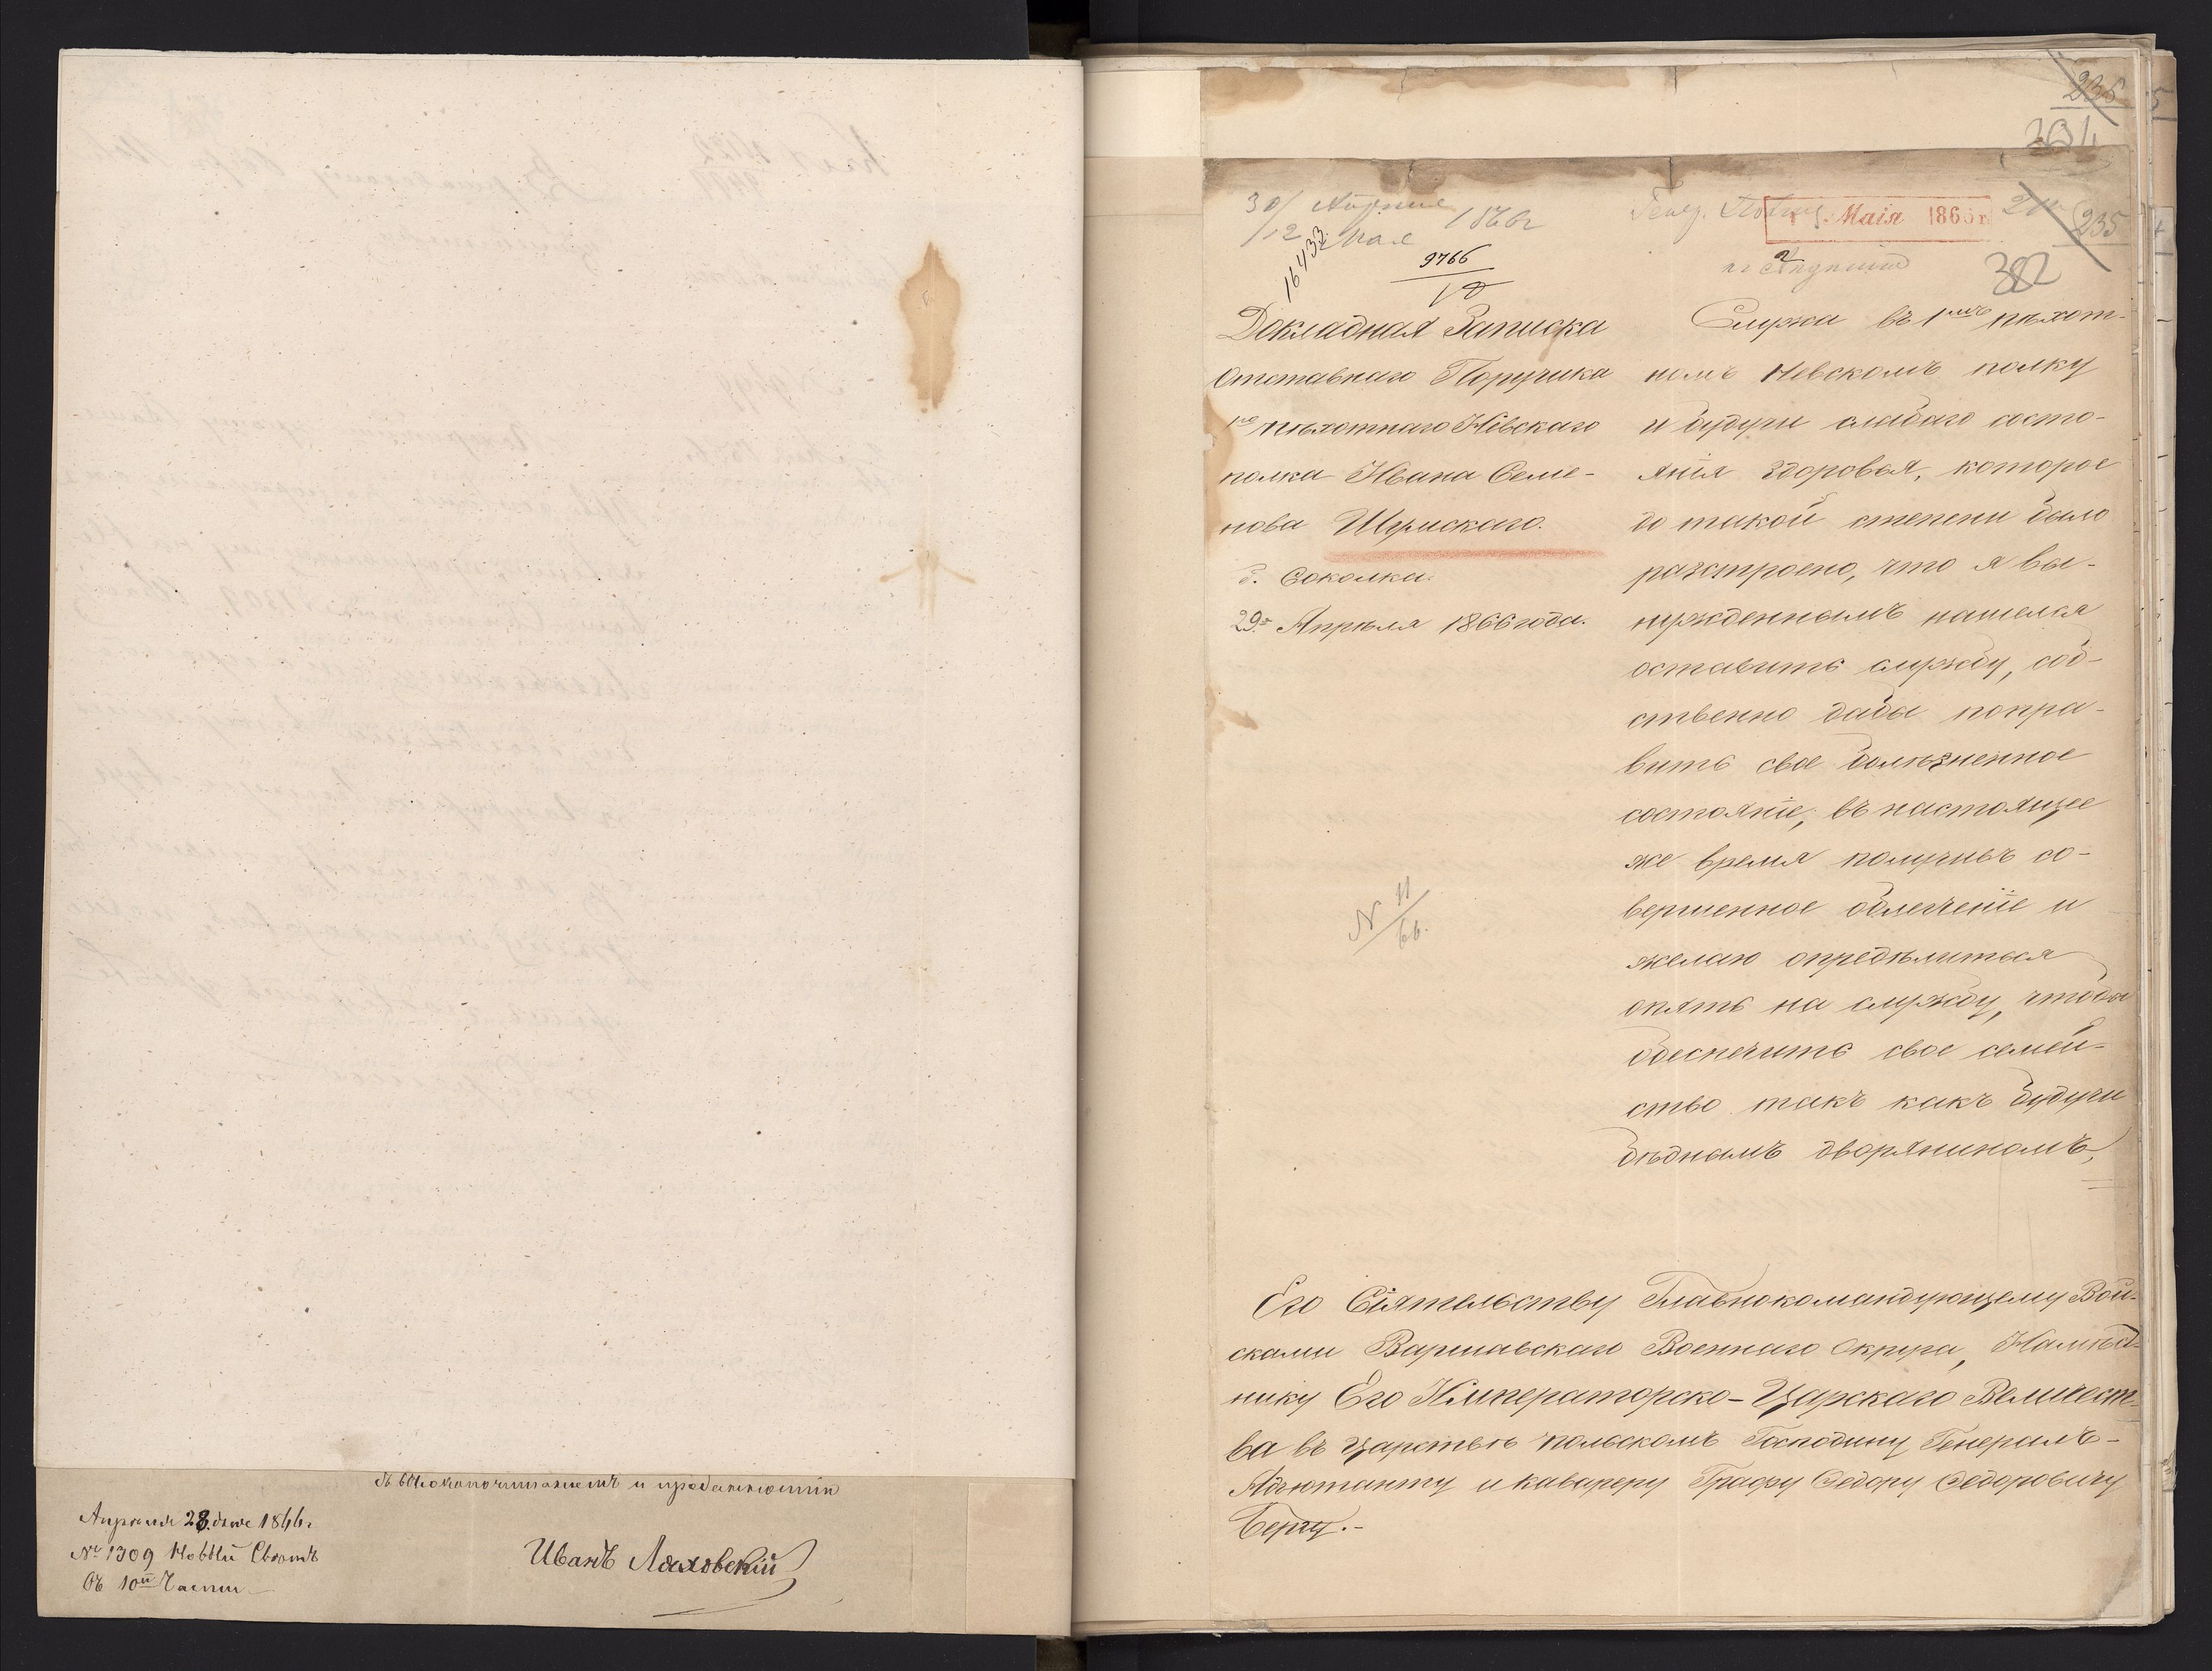 съ высокопочитаніемъ и преданностію
Апреля 28. дня 1866 г
№ 1309 Новый Свѣтъ
Иванъ Ляховскій
235
234
30/12 Апреля Мая 1866 г
16433
9766
10
Маія 186
235
382
Докладная Записка
Отставнаго Поручика
1го пѣхотнаго Невскаго
полка Ивана Семе-
нова Шумскаго.
г. Соколка.
29го Апрѣля 1866 года.
N 11/66.
Служа въ 1мъ пѣхот-
номъ Невскомъ полку
и будучи слабаго состо-
янія здоровья, которое
до такой степени было
разстроено, что я вы-
нужденнымъ нашелся
оставить службу, соб-
ственно дабы попра-
вить свое болѣзненное
состояніе; въ настоящее
же время получивъ со-
вершенное облегченіе и
желаю опредѣлиться
опять на службу, чтобы
обеспечить свое семей-
ство такъ какъ будучи
бѣднымъ дворяниномъ,
Его Сіятельству Главнокомандующему Вой-
сками Варшавскаго Военнаго Округа, Намѣст-
нику Его Императорско-Царскаго Величест-
ва въ Царствѣ польскомъ Господину Генералъ-
Адъютанту и кавалеру Графу Федору Федоровичу
Бергу.-